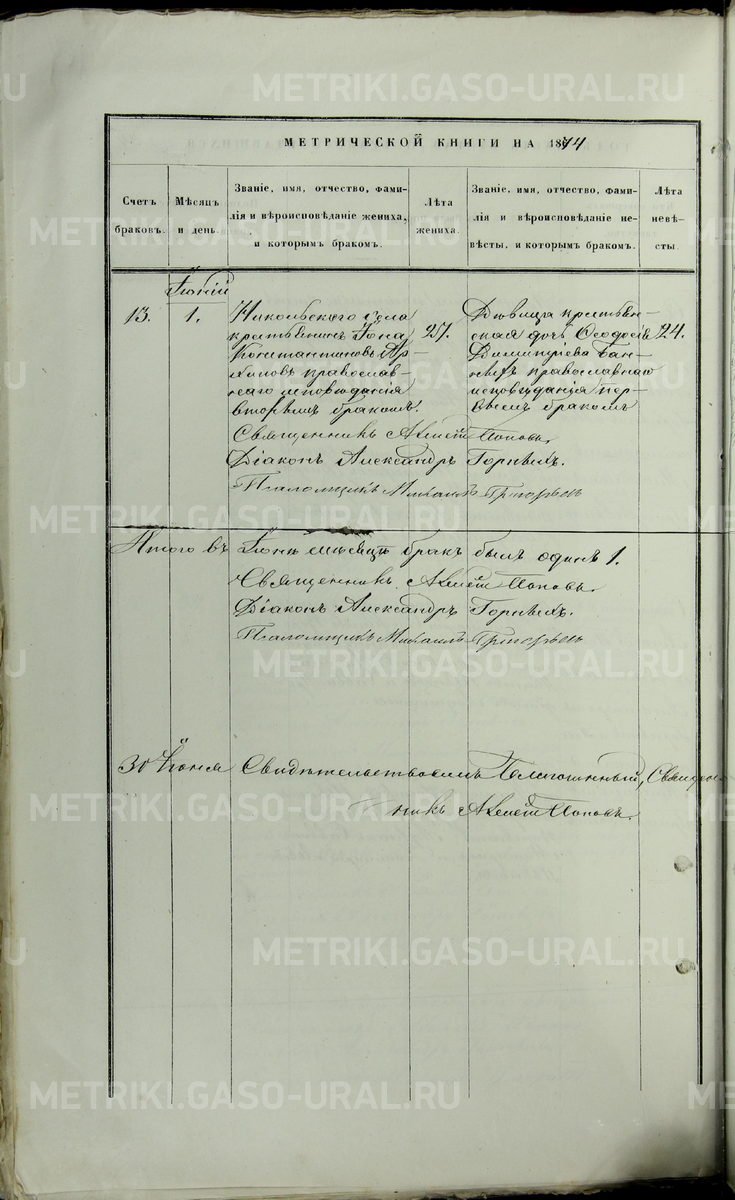 METRIKI.GASO-URAL.RU
МЕТРИЧЕСКОЙ КНИГИ НА 1874
Счетъ браковъ.
Мѣсяцъ и день.
Званіе, имя, отчество, фами-
лія и вѣроисповѣданіе жениха,
и которымъ бракомъ.
Лѣта жениха.
Званіе, имя, отчество, фами-
лія и вѣроисповѣданіе не-
вѣсты, и которымъ бракомъ.
Лѣта невѣ-
сты.
Іюній
13. 1.
Никольскаго села
крестьянинъ Іона
Константиновъ Ар-
хиповъ православ-
наго исповѣданія
вторымъ бракомъ.
27.
Дѣвица крестьян-
ская дочь Ѳеодосія
Димитріева Бан-
ныхъ православнаго
исповѣданія пер-
вымъ бракомъ
24.
Священникъ Алексѣй Поповъ.
Діаконъ Александръ Горныхъ.
Псаломщикъ Михаилъ Григорьевъ
Итого въ Іюнѣ мѣсяцѣ бракъ былъ одинъ 1.
Священникъ Алексѣй Поповъ.
Діаконъ Александръ Горныхъ.
Псаломщикъ Михаилъ Григорьевъ
30 Іюня Свидѣтельствовалъ Священ-
никъ Алексѣй Поповъ.